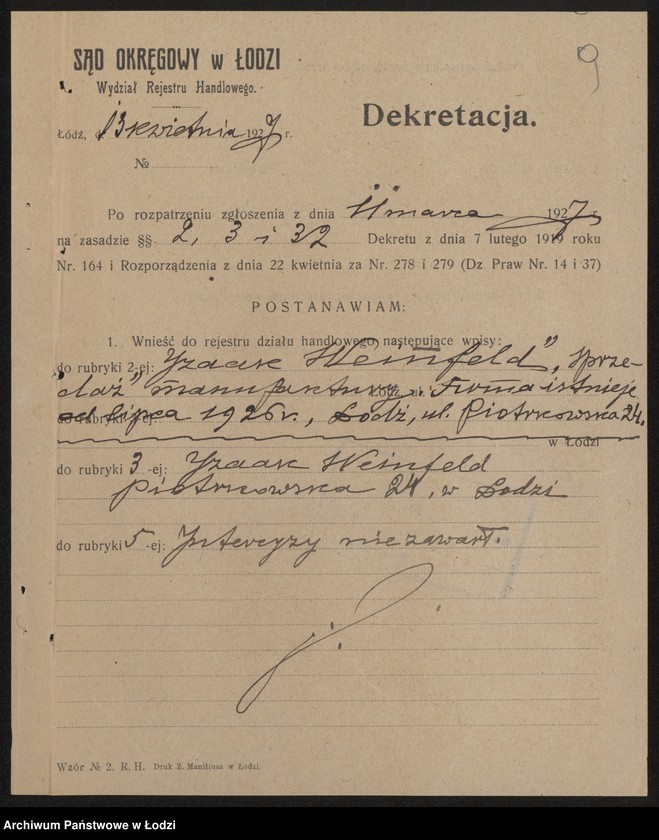 9
SĄD OKRĘGOWY w ŁODZI
Wydział Rejestru Handlowego.
Dekretacja.
Łódź, d. 13 kwietnia 1927 r.
№
Po rozpatrzeniu zgłoszenia z dnia 11 marca 1927 r.
na zasadzie §§ 2, 3 i 32 Dekretu z dnia 7 lutego 1919 roku
Nr. 164 i Rozporządzenia z dnia 22 kwietnia za Nr. 278 i 279 (Dz Praw Nr. 14 i 37)
POSTANAWIAM:
1. Wnieść do rejestru działu handlowego następujące wpisy:
do rubryki 2-ej: "Yzaak Weinfeld", sprze-
daż manufaktury. Firma istnieje
od lipca 1926 r., Łódź, ul. Piotrkowska 24.
w Łodzi
do rubryki 3-ej: Yzaak Weinfeld
Piotrkowska 24, w Łodzi
do rubryki 5-ej: Yntercyzy nie zawarł.
Wzór № 2. R. H. Druk Z. Manitiusa w Łodzi.
Archiwum Państwowe w Łodzi